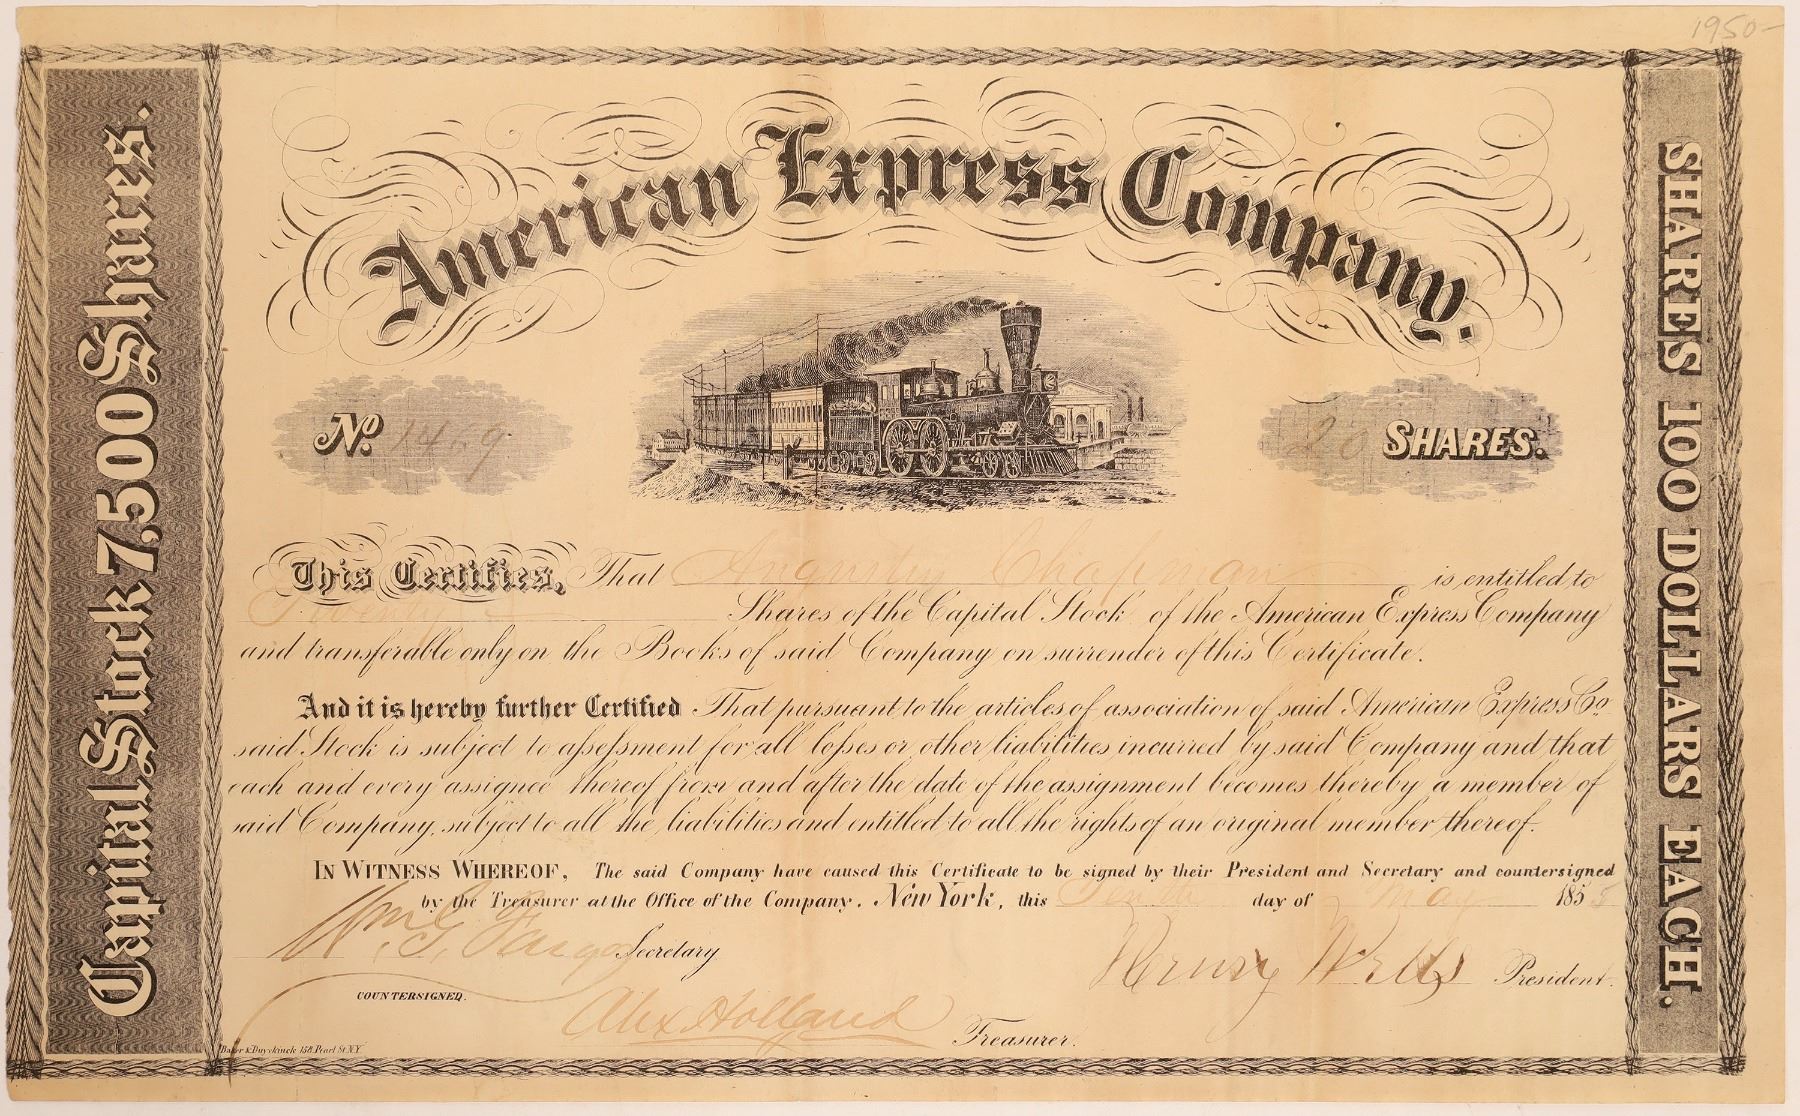 1950-
American Express Company.
Capital Stock 7,500 Shares.
SHARES 100 DOLLARS EACH.
No. 1429
20 SHARES.
This Certifies, That Augustus Chapman is entitled to
Twenty Shares of the Capital Stock of the American Express Company
and transferable only on the Books of said Company on surrender of this Certificate.
And it is hereby further Certified That pursuant to the articles of association of said American Express Co.
said Stock is subject to assessment for all losses or other liabilities incurred by said Company and that
each and every assignee thereof from and after the date of the assignment becomes thereby a member of
said Company, subject to all the liabilities and entitled to all the rights of an original member thereof.
IN WITNESS WHEREOF, The said Company have caused this Certificate to be signed by their President and Secretary and countersigned
by the Treasurer at the Office of the Company. New York, this Tenth day of May 1855
Wm. G. Fargo Secretary
Henry Wells President.
COUNTERSIGNED.
Alex Holland Treasurer.
Baker & Duyckinck 158 Pearl St. N.Y.